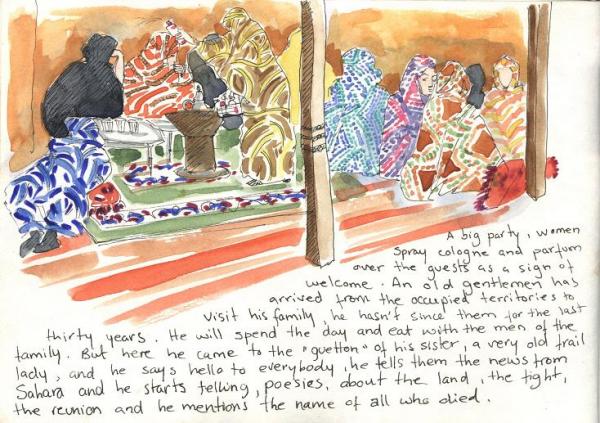 A big party, women
spray cologne and parfum
over the guests as a sign of
welcome. An old gentlemen has
arrived from the occupied territories to
visit his family, he hasn't since them for the last
thirty years. He will spend the day and eat with the men of the
family. But here he came to the "guetton" of his sister, a very old frail
lady, and he says hello to everybody, he tells them the news from
Sahara and he starts telling, poesies, about the land, the fight,
the reunion and he mentions the name of all who died.